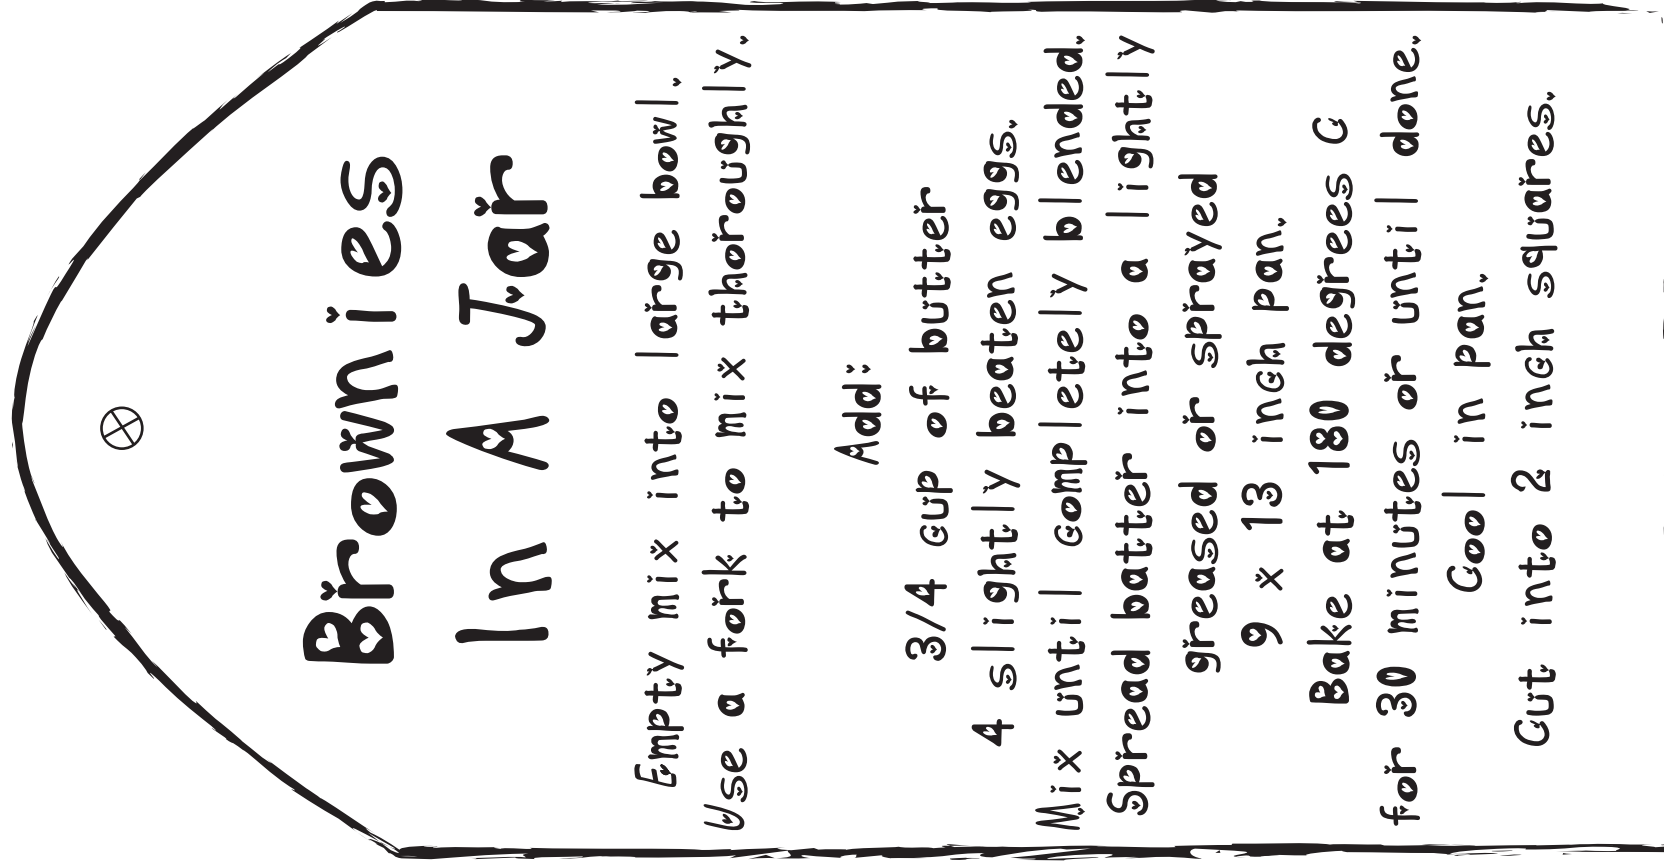 Brownies
In A Jar
Empty mix into large bowl.
Use a fork to mix thoroughly.
Add:
3/4 cup of butter
4 slightly beaten eggs.
Mix until completely blended.
Spread batter into a lightly
greased or sprayed
9 x 13 inch pan.
Bake at 180 degrees C
for 30 minutes or until done.
Cool in pan.
Cut into 2 inch squares.